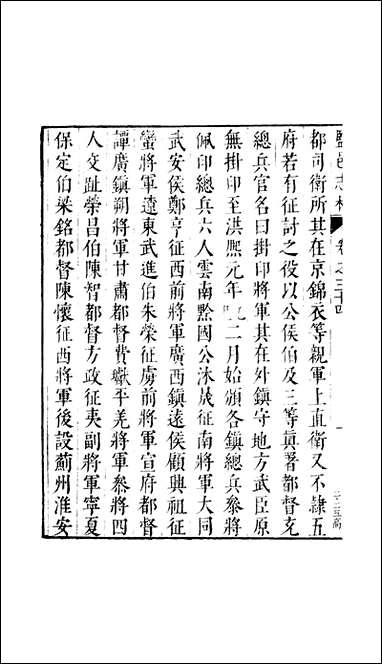 鹽邑志林 卷之三十四
都司衛所其在京錦衣等親軍上直衛又不隸五
府若有征討之役以公侯伯及三等真署都督充
總兵官名曰掛印將軍其在外鎮守地方武臣原
無掛印至洪熙元年 二月始頒各鎮總兵參將
佩印總兵六人雲南黔國公沐晟征南將軍大同
武安侯鄭亨征西前將軍廣西鎮遠侯顧興祖征
蠻將軍遼東武進伯朱榮征虜前將軍宣府都督
譚廣鎮朔將軍甘肅都督費瓛平羌將軍參將四
人交趾榮昌伯陳智都督方政征夷副將軍寧夏
保定伯梁銘都督陳懷征西將軍後設薊州淮安